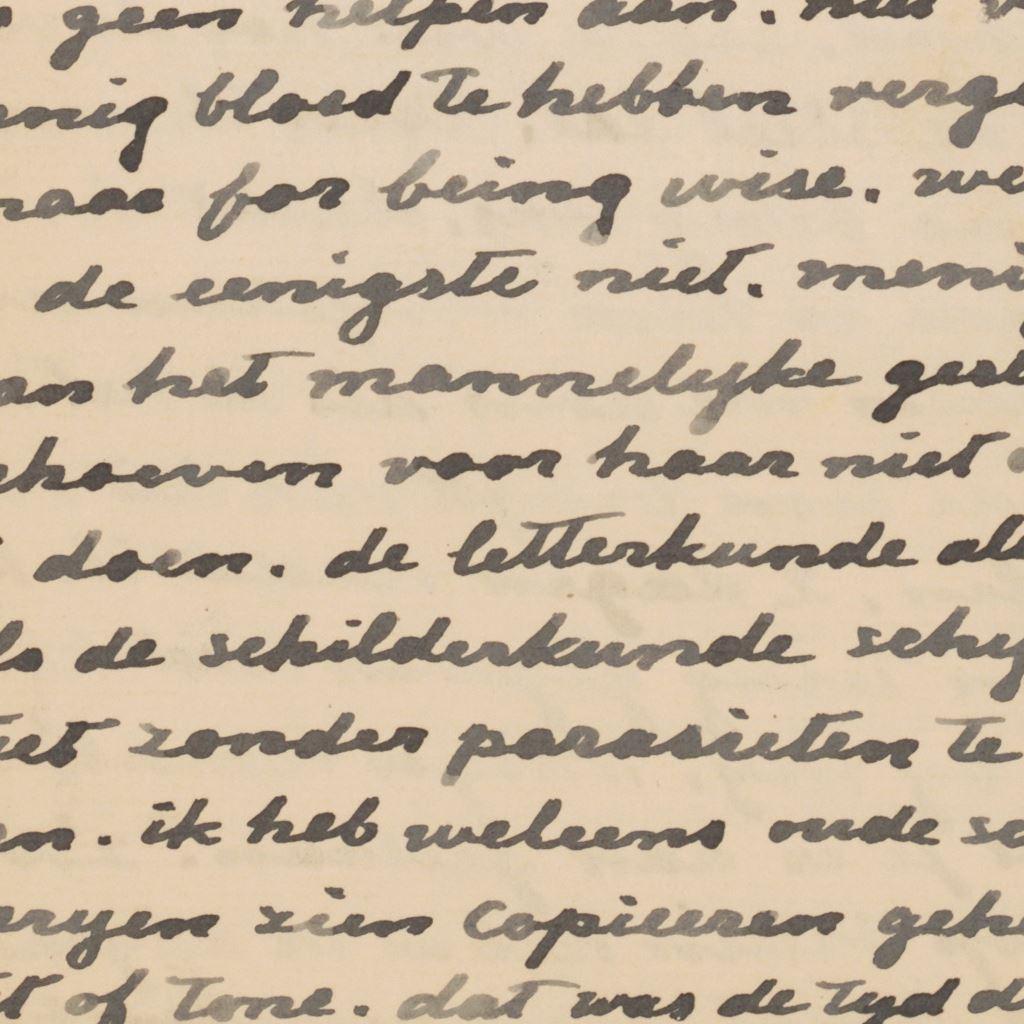 geen helpen aan. niet
enig bloed te hebben verge
for being wise. we
de eenigste niet. meni
an het mannelyke gesl
ehoeven voor haar niet
doen. de letterkunde all
ls de schilderkunde schy
iet zonder parasieten te
en. ik heb weleens oude sc
eryen zien copieeren gehe
it of Tone. dat was de tyd d